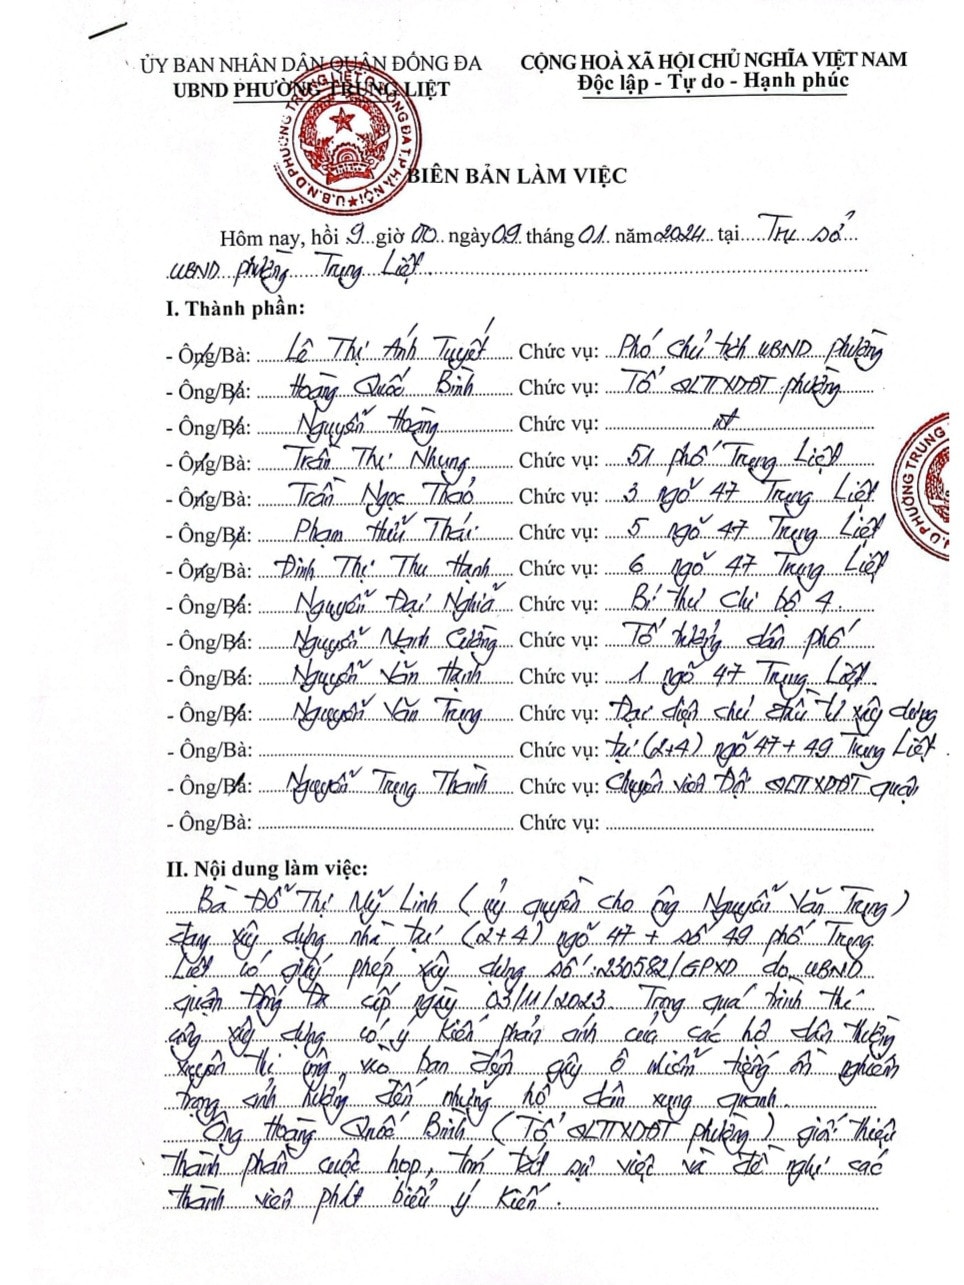 ỦY BAN NHÂN DÂN QUẬN ĐỐNG ĐA
UBND PHƯỜNG TRUNG LIỆT
CỘNG HOÀ XÃ HỘI CHỦ NGHĨA VIỆT NAM
Độc lập - Tự do - Hạnh phúc
BIÊN BẢN LÀM VIỆC
Hôm nay, hồi 9 giờ 00 ngày 09 tháng 01 năm 2024 tại Trụ sở
UBND phường Trung Liệt
I. Thành phần:
- Ông/Bà: Lê Thị Ánh Tuyết Chức vụ: Phó chủ tịch UBND phường
- Ông/Bà: Hoàng Quốc Bình Chức vụ: Tổ QLTTXDĐT phường
- Ông/Bà: Nguyễn Hoàng Chức vụ: nt
- Ông/Bà: Trần Thị Nhung Chức vụ: 51 phố Trung Liệt
- Ông/Bà: Trần Ngọc Thảo Chức vụ: 3 ngõ 47 Trung Liệt
- Ông/Bà: Phạm Hữu Thái Chức vụ: 5 ngõ 47 Trung Liệt
- Ông/Bà: Đinh Thị Thu Hạnh Chức vụ: 6 ngõ 47 Trung Liệt
- Ông/Bà: Nguyễn Đại Nghĩa Chức vụ: Bí thư Chi bộ 4
- Ông/Bà: Nguyễn Mạnh Cường Chức vụ: Tổ trưởng dân phố
- Ông/Bà: Nguyễn Văn Hạnh Chức vụ: 1 ngõ 47 Trung Liệt
- Ông/Bà: Nguyễn Văn Trung Chức vụ: Đại diện chủ đầu tư xây dựng
- Ông/Bà: Chức vụ: tại (2+4) ngõ 47 + 49 Trung Liệt
- Ông/Bà: Nguyễn Trung Thành Chức vụ: Chuyên viên Đội QLTTXDĐT quận
- Ông/Bà: Chức vụ:
II. Nội dung làm việc:
Bà Đỗ Thị Mỹ Linh (ủy quyền cho ông Nguyễn Văn Trung)
đang xây dựng nhà tại (2+4) ngõ 47 + số 49 phố Trung
Liệt có giấy phép xây dựng số: 230582/GPXD do UBND
quận Đống Đa cấp ngày 03/11/2023. Trong quá trình thi
công xây dựng có ý kiến phản ánh của các hộ dân thường
xuyên thi công vào ban đêm gây ô nhiễm tiếng ồn nghiêm
trọng ảnh hưởng đến những hộ dân xung quanh.
Ông Hoàng Quốc Bình (Tổ QLTTXDĐT phường) giới thiệu
thành phần cuộc họp, tóm tắt sự việc và đề nghị các
thành viên phát biểu ý kiến.